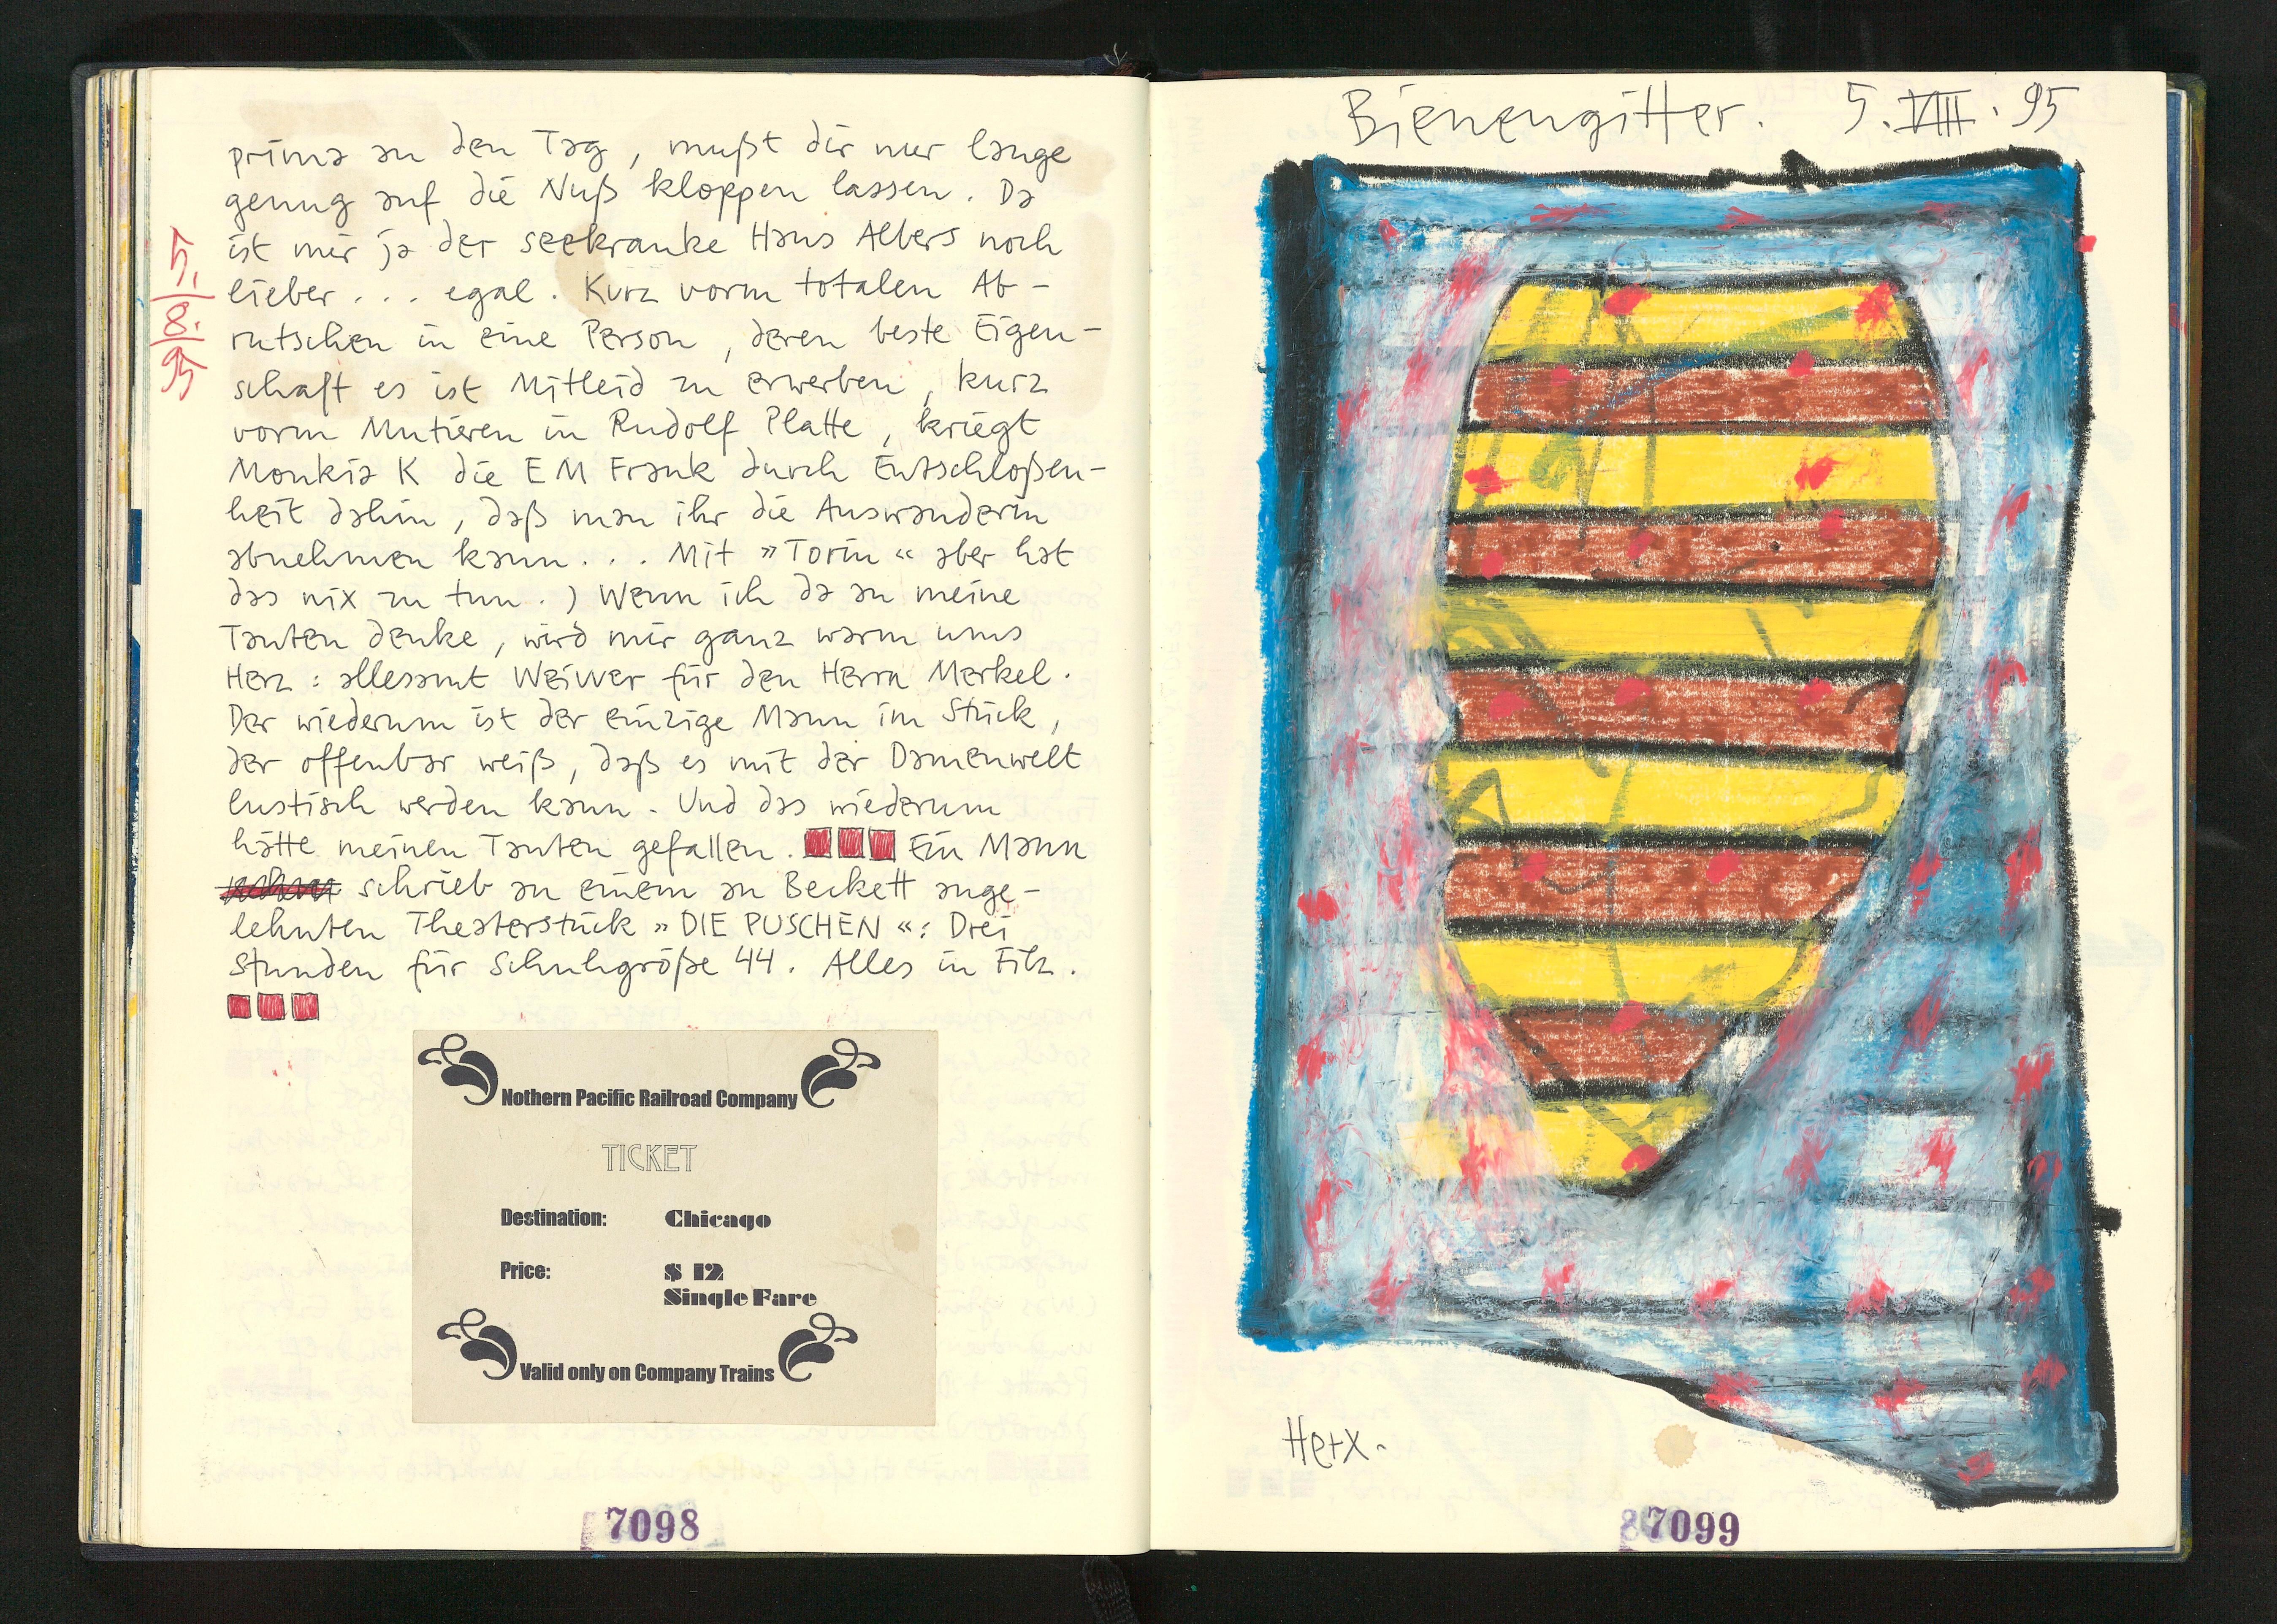 prima an den Tag, mußt dir nur lange
genug auf die Nuß kloppen lassen. Da
ist mir ja der seekranke Hans Albers noch
lieber... egal. Kurz vorm totalen Ab-
rutschen in eine Person, deren beste Eigen-
schaft es ist Mitleid zu erwerben, kurz
vorm Mutieren in Rudolf Platte, kriegt
Monkia K die EM Frank durch Entschloßen-
heit dahin, daß man ihr die Auswanderin
abnehmen kann... Mit »Torin« aber hat
das nix zu tun.) Wenn ich da an meine
Tanten denke, wird mir ganz warm ums
Herz: allesamt Weiwer für den Herrn Merkel.
Der wiederum ist der einzige Mann im Stück,
der offenbar weiß, daß es mit der Damenwelt
lustisch werden kann. Und das wiederum
hätte meinen Tanten gefallen. Ein Mann
schrieb an einem an Beckett ange-
lehnten Theaterstück »DIE PUSCHEN«: Drei
Stunden für Schuhgröße 44. Alles in Filz.
5.
8.
95
Nothern Pacific Railroad Company
TICKET
Destination: Chicago
Price: $ 12
Single Fare
Valid only on Company Trains
7098
Bienengitter. 5.VIII.95
Herx.
7099